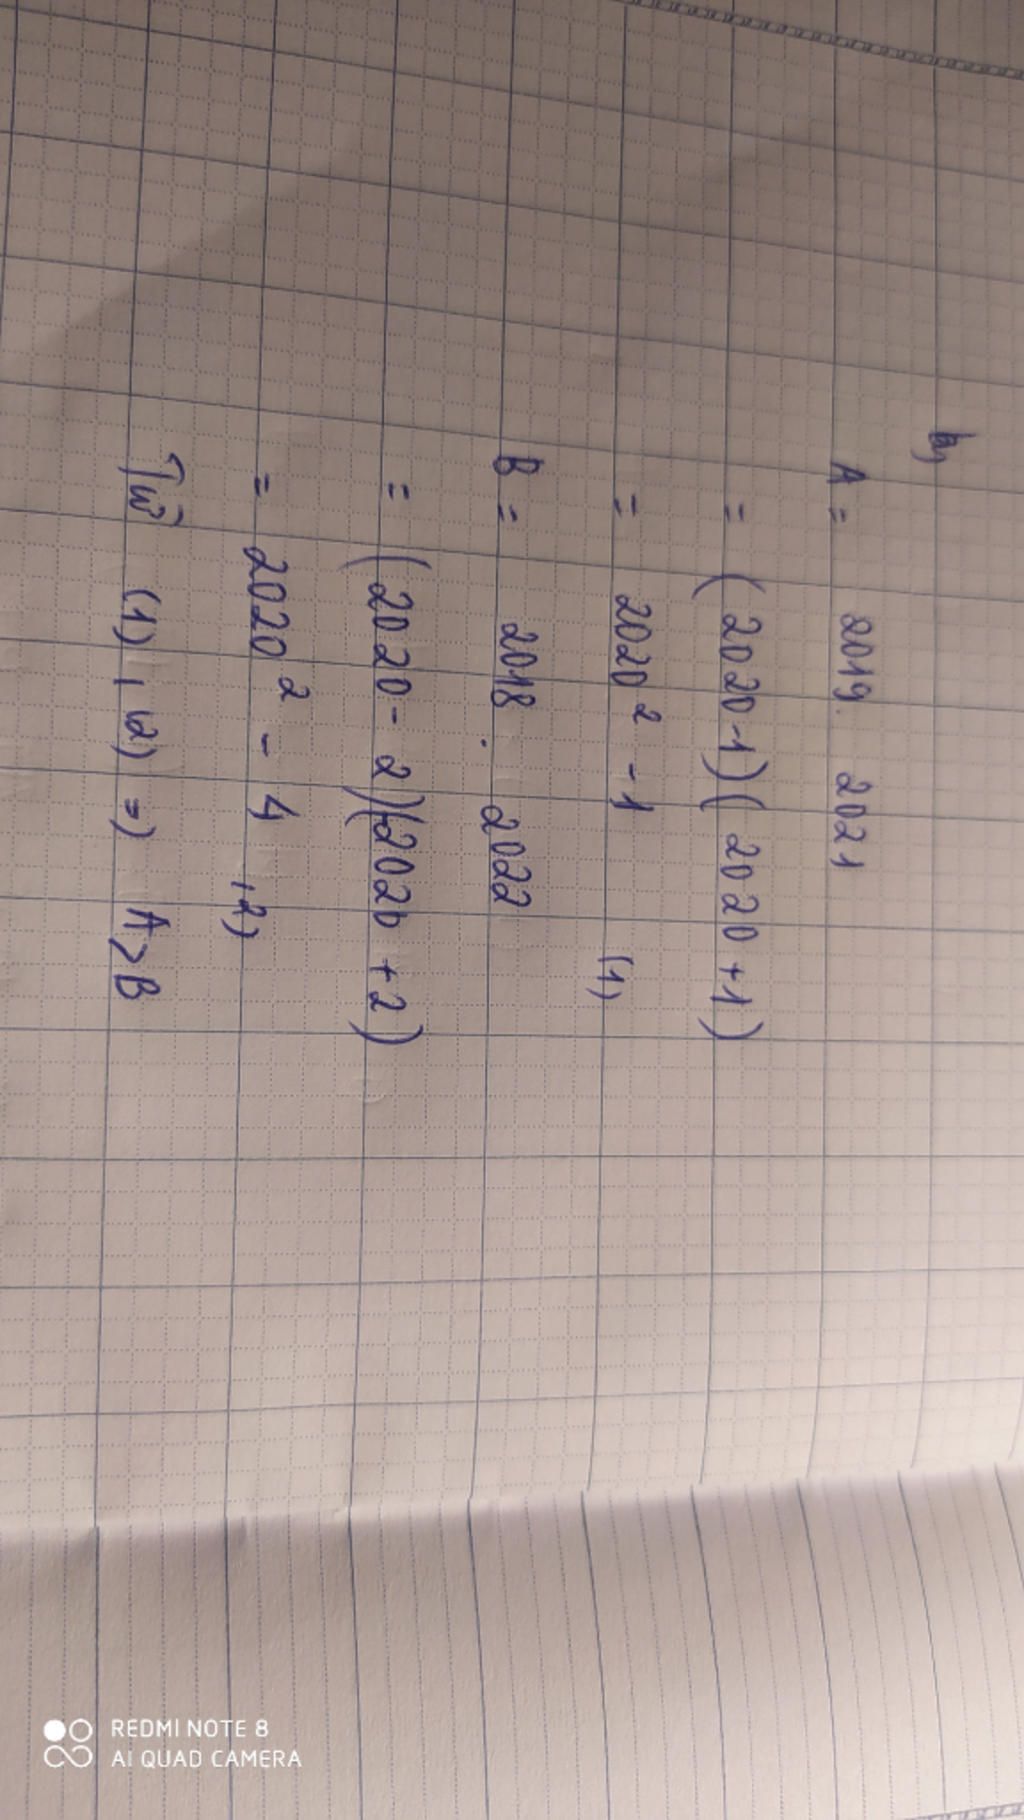 b,
A = 2019. 2021
= (2020-1)(2020+1)
= 2020² -1 (1)
B = 2018 . 2022
= (2020-2)(2020+2)
= 2020² - 4 (2)
Từ (1), (2) => A>B
REDMI NOTE 8
AI QUAD CAMERA